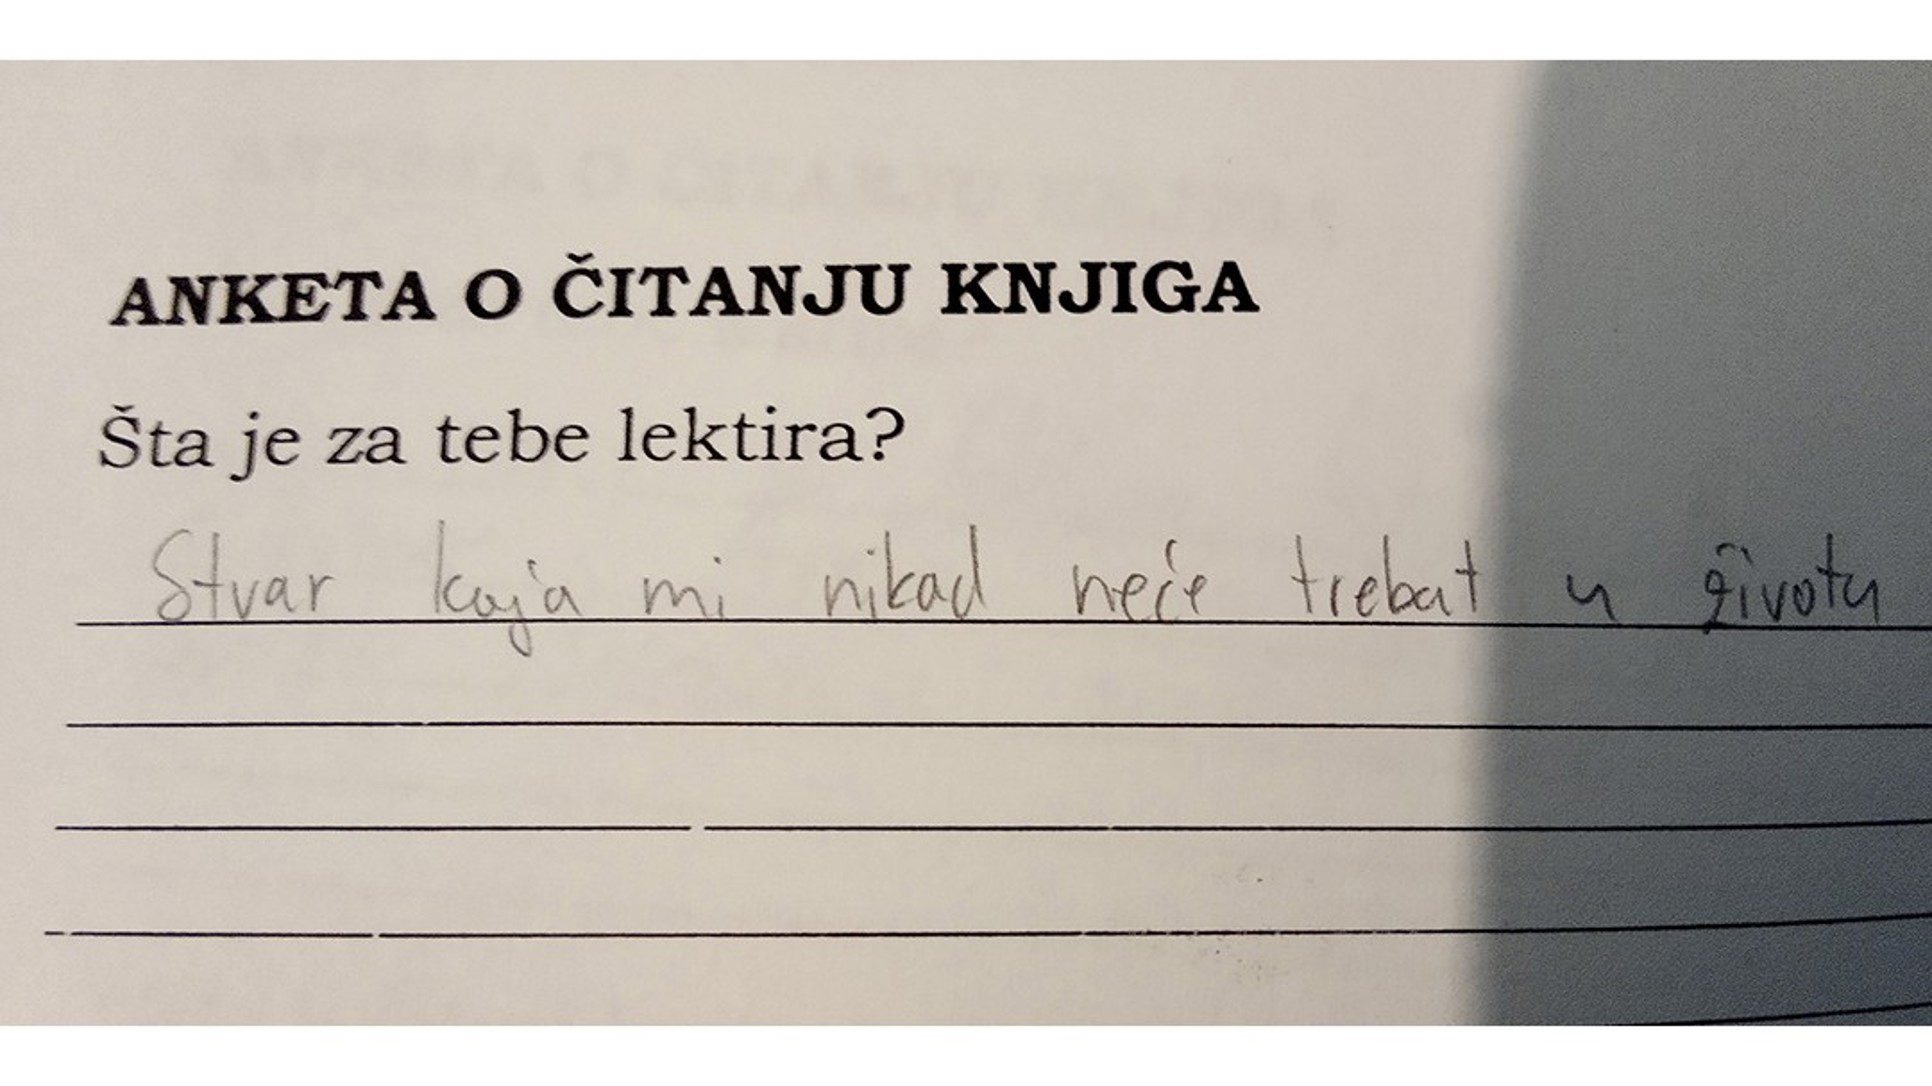 ANKETA O ČITANJU KNJIGA
Šta je za tebe lektira?
Stvar koja mi nikad neće trebat u životu